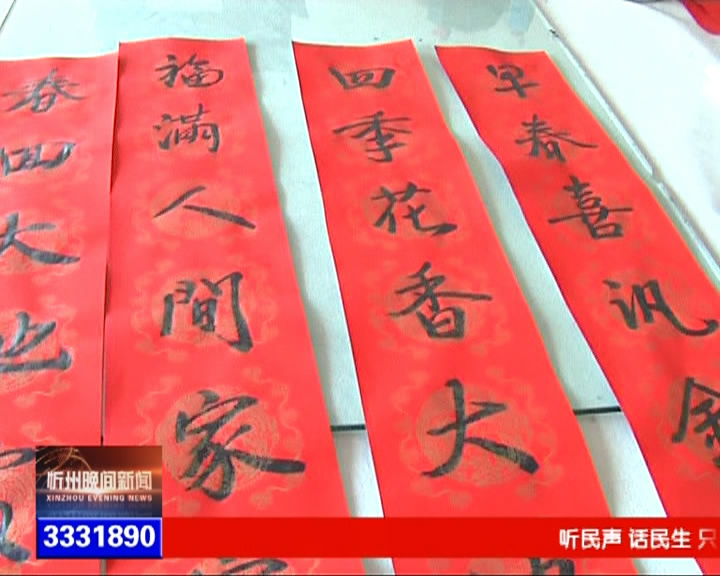 早春喜讯金
四季花香大
福满人間家
春四大
忻州晚间新闻
XINZHOU EVENING NEWS
3331890
听民声 话民生 只